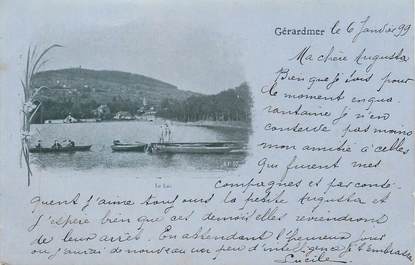 Gérardmer le 6 Janvier 99
Ma chère Augusta
Bien que je sois pour
le moment en qua
rantaine je n'en
conserve pas moins
mon amitié à celles
qui furent mes
Le Lac
compagnes et par conse
quent j'aime toujours la petite Augusta et
j'espère bien que ces demoiselles reviendront
de leur arrêt. En attendant l'heureux jour
ou j'aurai de nouveau un peu d'interêt je t'embrasse
Lucile